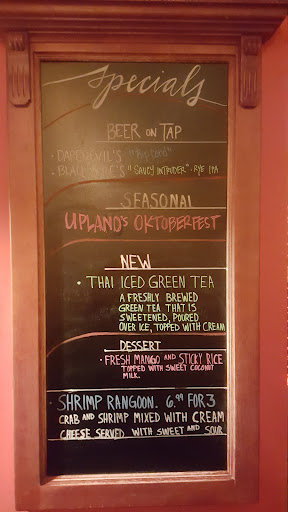 Specials
BEER ON TAP
· DAREDEVIL'S
· BLACK ACRE'S "SAUCY INTRUDER" - RYE IPA
SEASONAL
UPLAND'S OKTOBERFEST
NEW
· THAI ICED GREEN TEA
A FRESHLY BREWED
GREEN TEA THAT IS
SWEETENED, POURED
OVER ICE, TOPPED WITH CREAM
DESSERT
· FRESH MANGO AND STICKY RICE
TOPPED WITH SWEET COCONUT
MILK.
· SHRIMP RANGOON. 6.99 FOR 3
CRAB AND SHRIMP MIXED WITH CREAM
CHEESE SERVED WITH SWEET AND SOUR